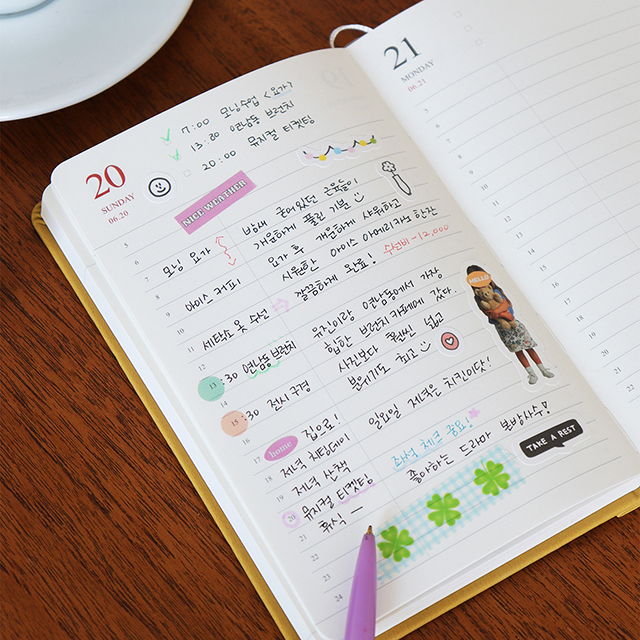 20
SUNDAY
06.20
7:00 모닝수업 <요가>
13:30 연남동 브런치
20:00 뮤지컬 티켓팅
NICE WEATHER
5
6
7 모닝 요가
8
9 아이스 커피
10
11 세탁소 옷 수선
12
13 :30 연남동 브런치
14
15 :30 전시 구경
16
17 home 집으로!
18 저녁 치팅데이
19 저녁 산책
20 뮤지컬 티켓팅
21 휴식 —
22
23
24
밤새 굳어있던 근육들이
개운하게 풀린 기분
요가 후 개운하게 샤워하고
시원한 아이스 아메리카노 한잔
깔끔하게 완료! 수선비 -12,000
유진이랑 연남동에서 가장
힙한 브런치 카페에 갔다.
사진보다 훨씬 넓고
분위기도 최고
일요일 저녁은 치킨이닷!
좌석 체크 중요!
좋아하는 드라마 본방사수!
HELLO
TAKE A REST
21
MONDAY
06.21
5
6
7
8
9
10
11
12
13
14
15
16
17
18
19
20
21
22